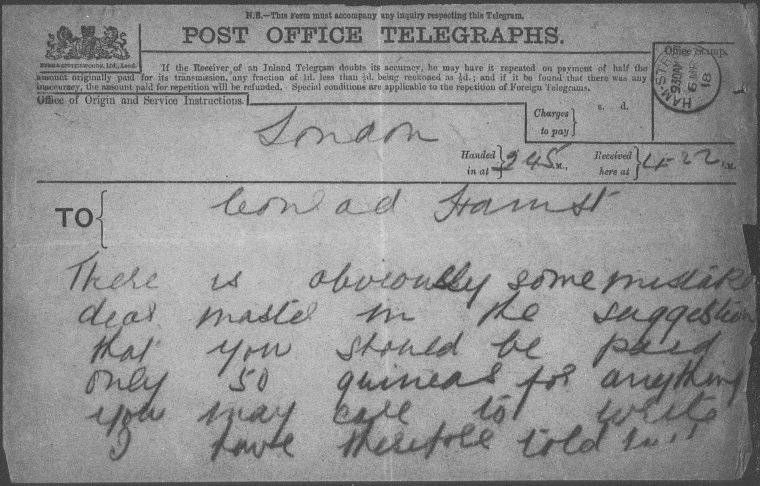 N.B.—This Form must accompany any inquiry respecting this Telegram.
POST OFFICE TELEGRAPHS.
If the Receiver of an Inland Telegram doubts its accuracy, he may have it repeated on payment of half the
amount originally paid for its transmission, any fraction of 1d. less than ½d. being reckoned as ½d.; and if it be found that there was any
inaccuracy, the amount paid for repetition will be refunded. Special conditions are applicable to the repetition of Foreign Telegrams.
Office Stamp.
18
Office of Origin and Service Instructions.
Charges to pay
s. d.
London
Handed in at 2 45 M.,
Received here at 4-22 M.
TO
Conrad Hamst
There is obviously some mistake
dear master in the suggestion
that you should be paid
only 50 guineas for anything
you may care to write
I have therefore told